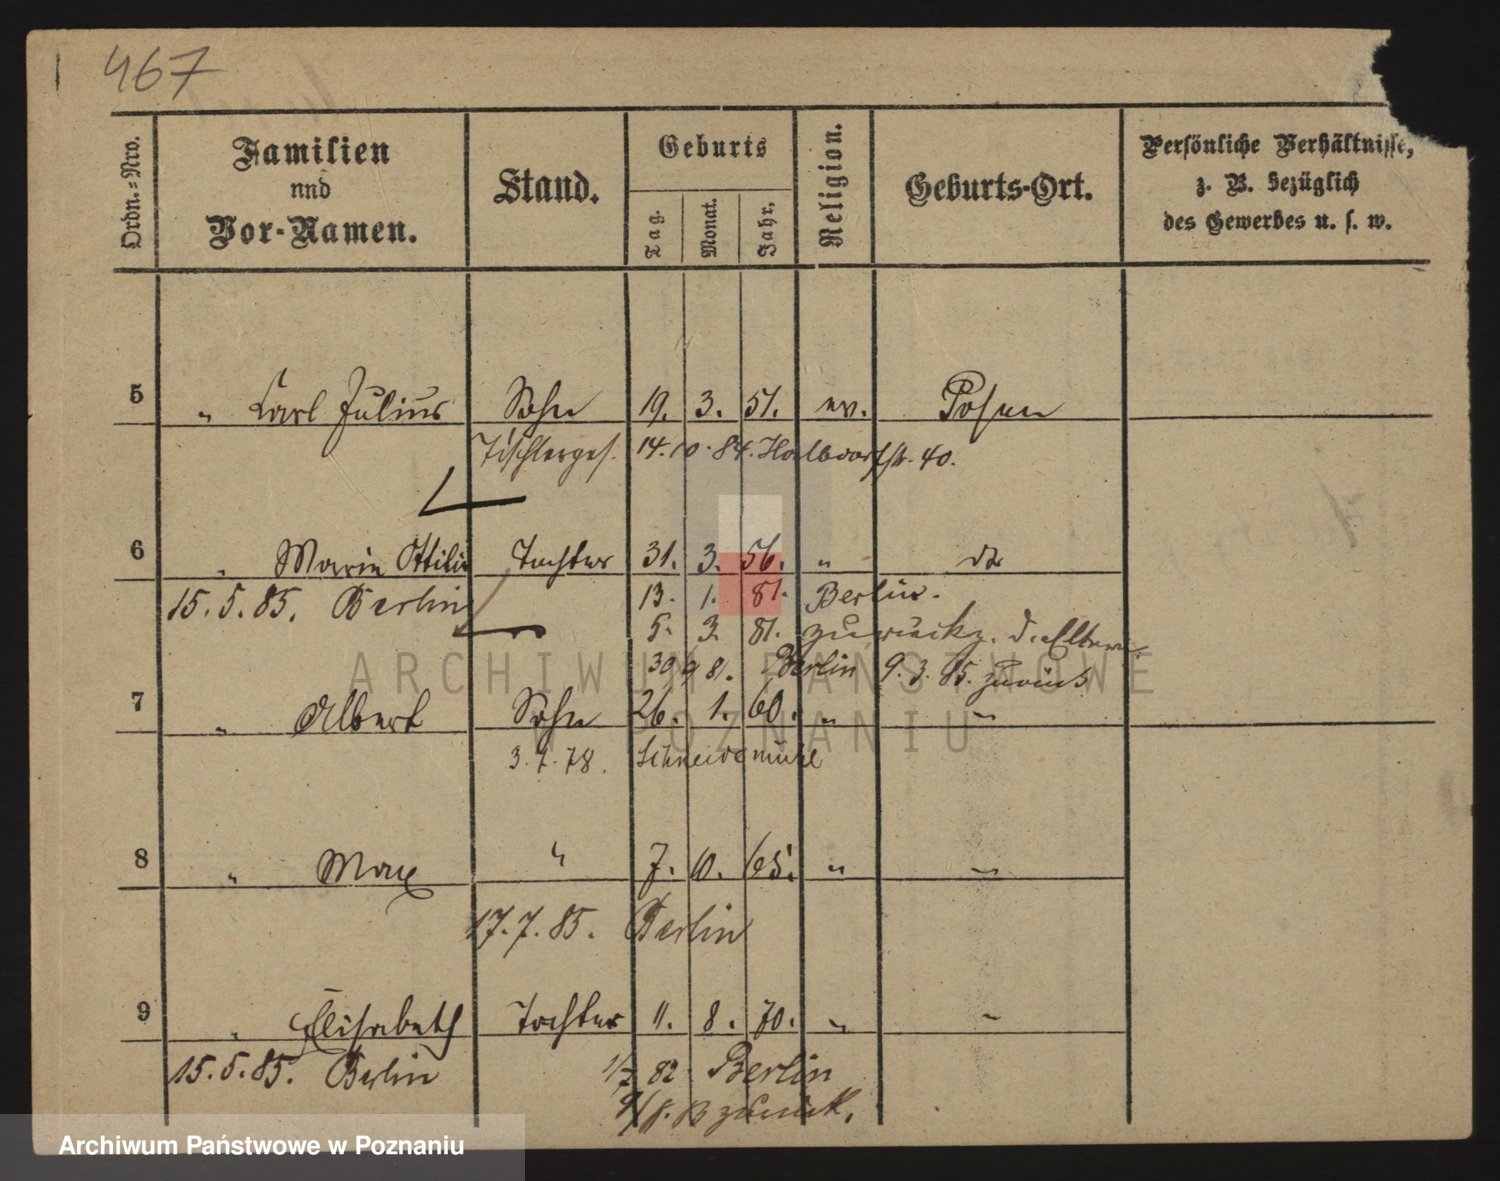 467
Ordn.=Nro.
Familien
und
Vor-Namen.
Stand.
Geburts
Tag.
Monat.
Jahr.
Religion.
Geburts-Ort.
Persönliche Verhältnisse,
z. B. bezüglich
des Gewerbes u. s. w.
5 " Carl Julius Sohn 19. 3. 51. ev. Posen
Tischlerges. 14.10.84. Halbdorfstr. 40.
6 " Marie Ottilie Tochter 31. 3. 56. " do
15.5.85. Berlin 13. 1. 81. Berlin.
5. 3. 81. zurück z. d. Eltern
30/9 81. Berlin 9.3.85. zurück
7 " Albert Sohn 26. 1. 60. " "
3.7.78. Schneidemühl
8 " Max " 7. 10. 65. " "
17.7.85. Berlin
9 " Elisabeth Tochter 11. 8. 70. " "
15.5.85. Berlin 1/7 82 Berlin
zurück.
ARCHIWUM PAŃSTWOWE
W POZNANIU
Archiwum Państwowe w Poznaniu